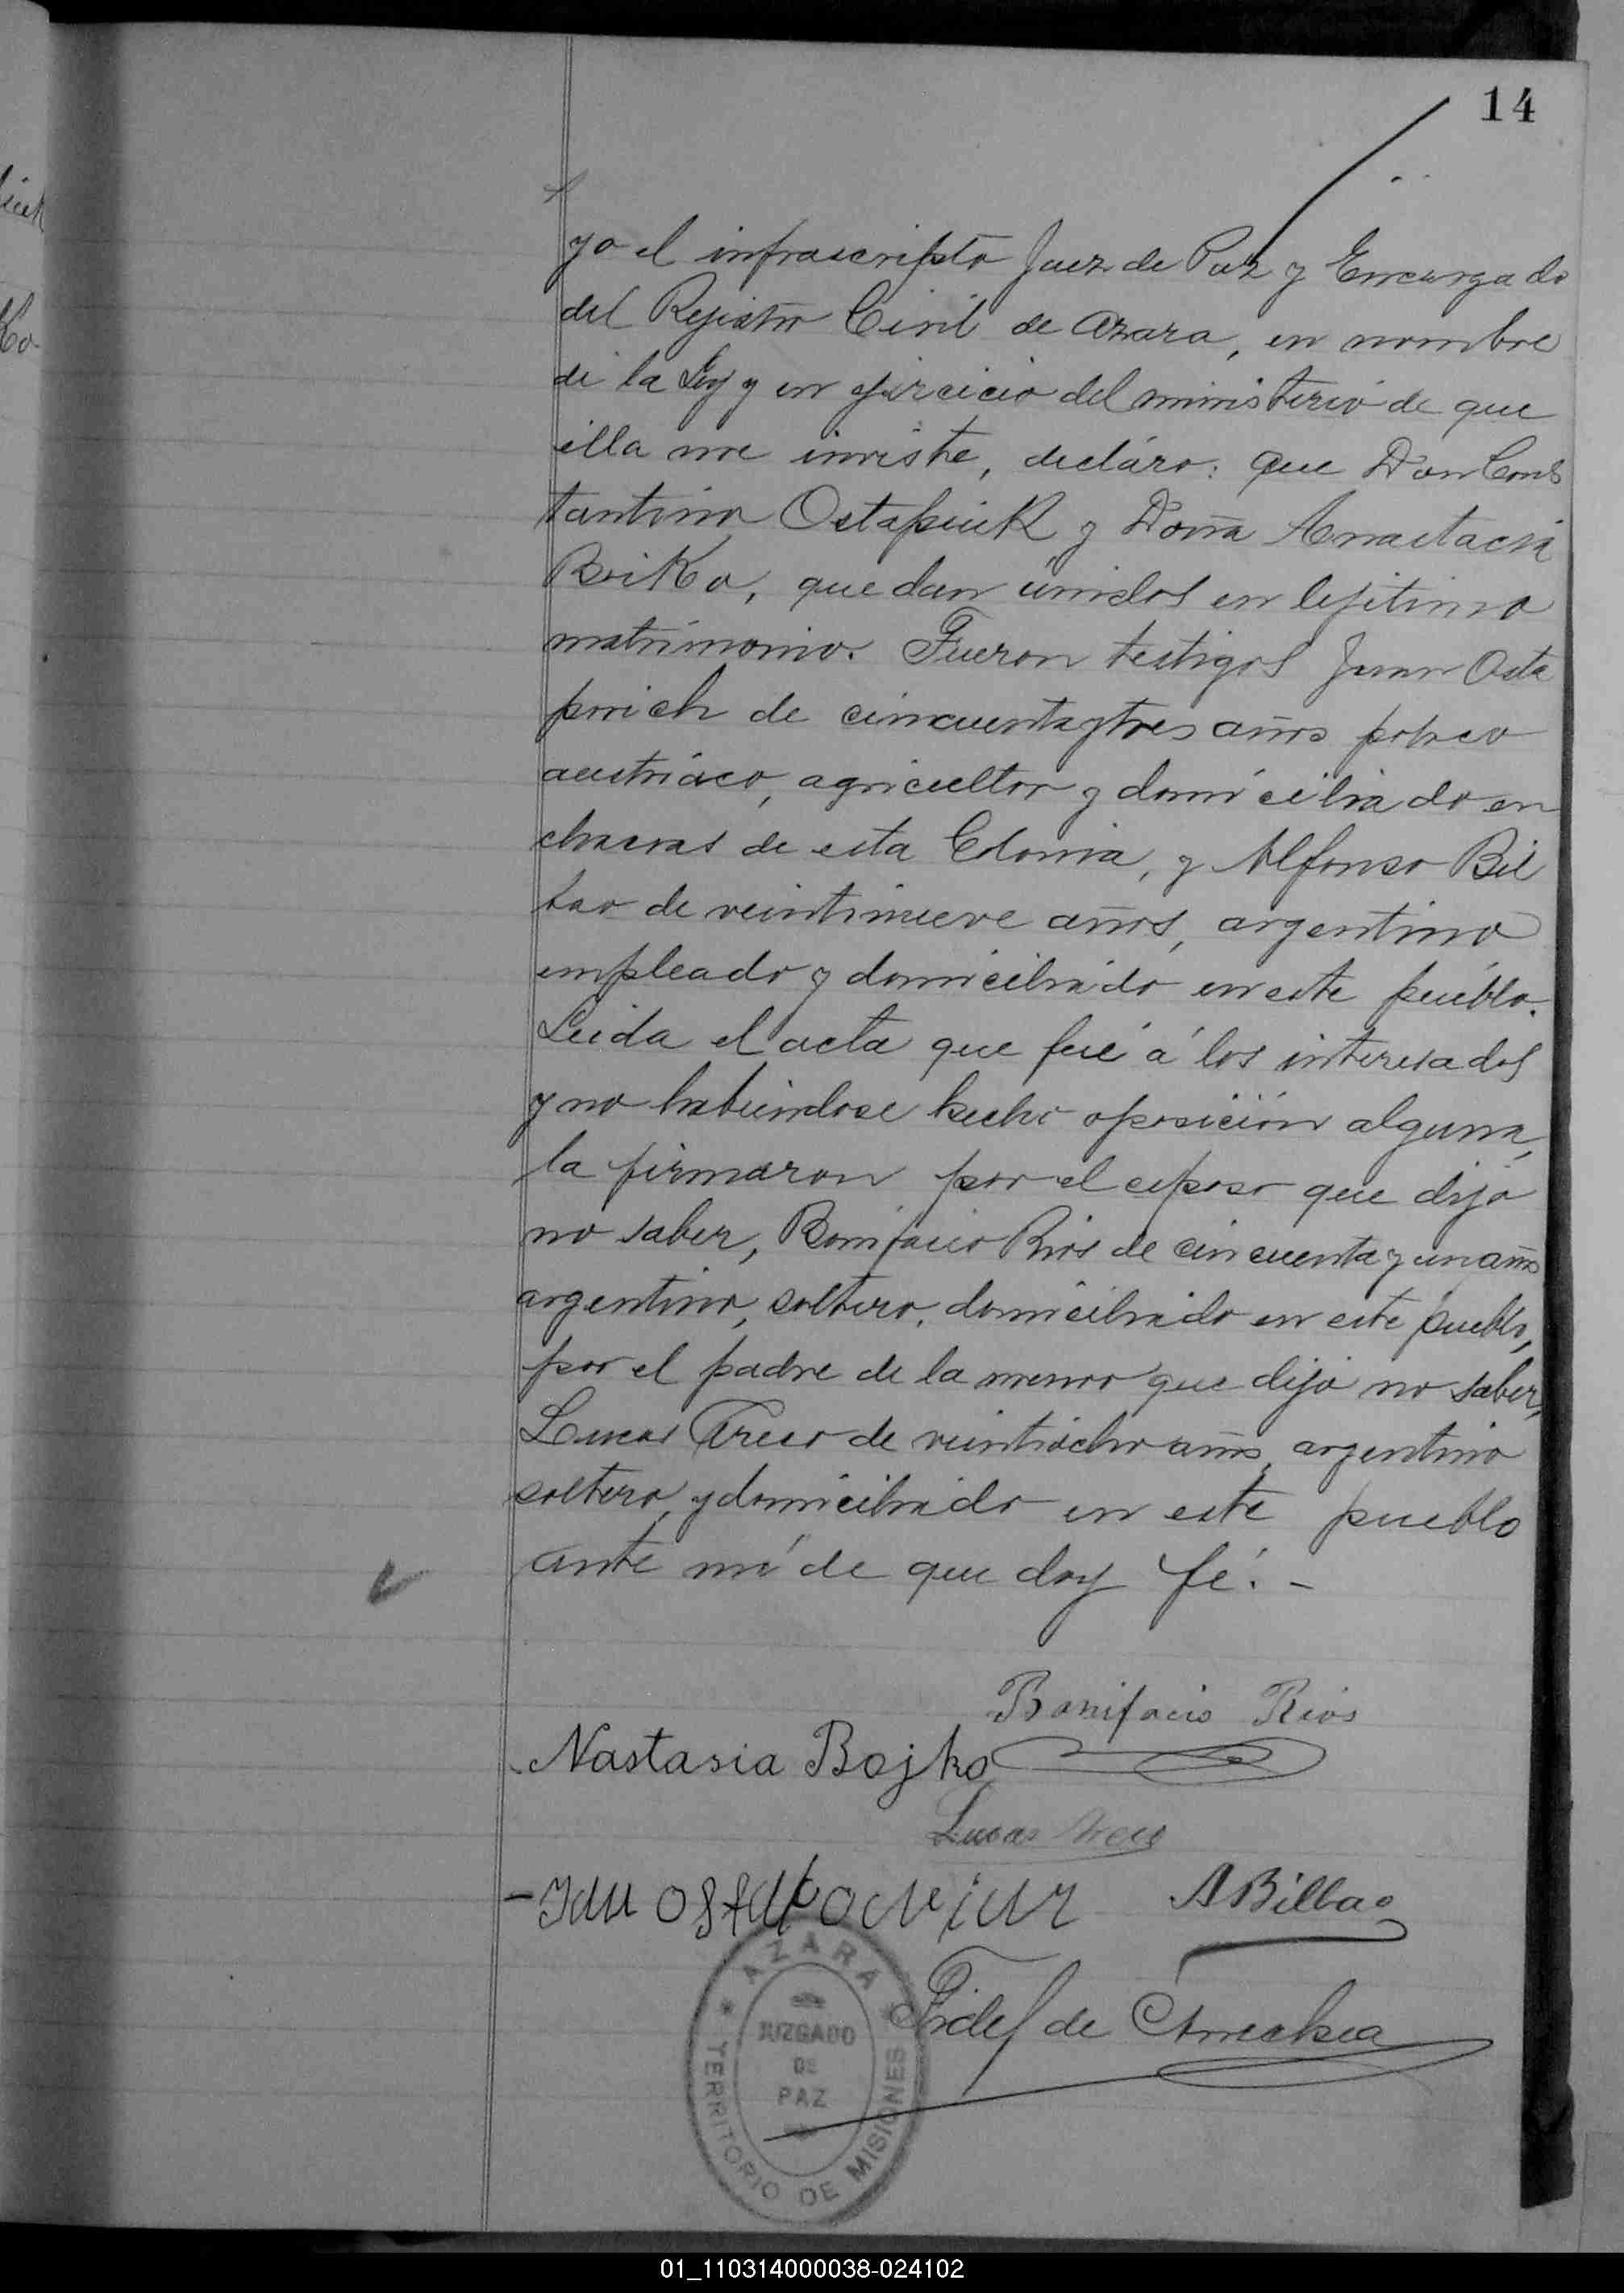 14
yo el infrascripto Juez de Paz y Encargado
del Rejistro Civil de Azara, en nombre
de la Ley y en ejercicio del ministerio de que
ella me inviste, decláro: que Don Cons
tantino Ostapiuk y Doña Anastacia
Boiko, quedan únidos en lejitimo
matrimonio. Fueron testigos Juan Osta
povich de cincuentaytres años polaco
austríaco, agricultor y domiciliado en
chacras de esta Colonia, y Alfonso Bil
bao de veintinueve años, argentino
empleado y domiciliado en este pueblo.
Leida el acta que fué á los interesados
y no habiendose hecho oposición alguna,
la firmaron por el esposo que dijo
no saber, Bonifacio Rios de cincuenta y un años
argentino, soltero, domiciliado en este pueblo,
por el padre de la menor que dijo no saber,
Lucas Arece de veintiocho años, argentino
soltero, y domiciliado en este pueblo
ante mí de que doy fé. -
Bonifacio Rios
Nastasia Bojko
Lucas
ABilbao
Fidel de
AZARA
JUZGADO
DE
PAZ
TERRITORIO DE MISIONES
01_110314000038-024102